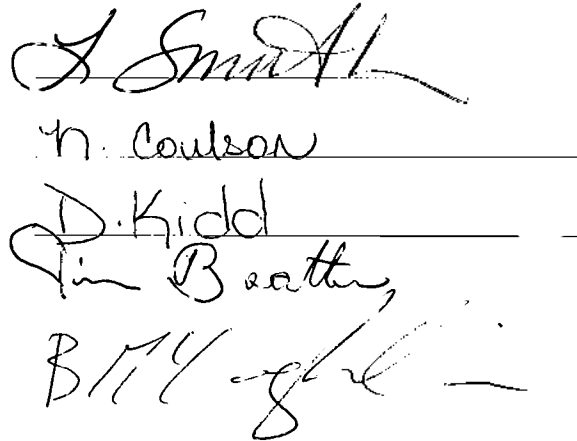 L Smith
N. Coulson
D. Kidd
Jim Beatty
B